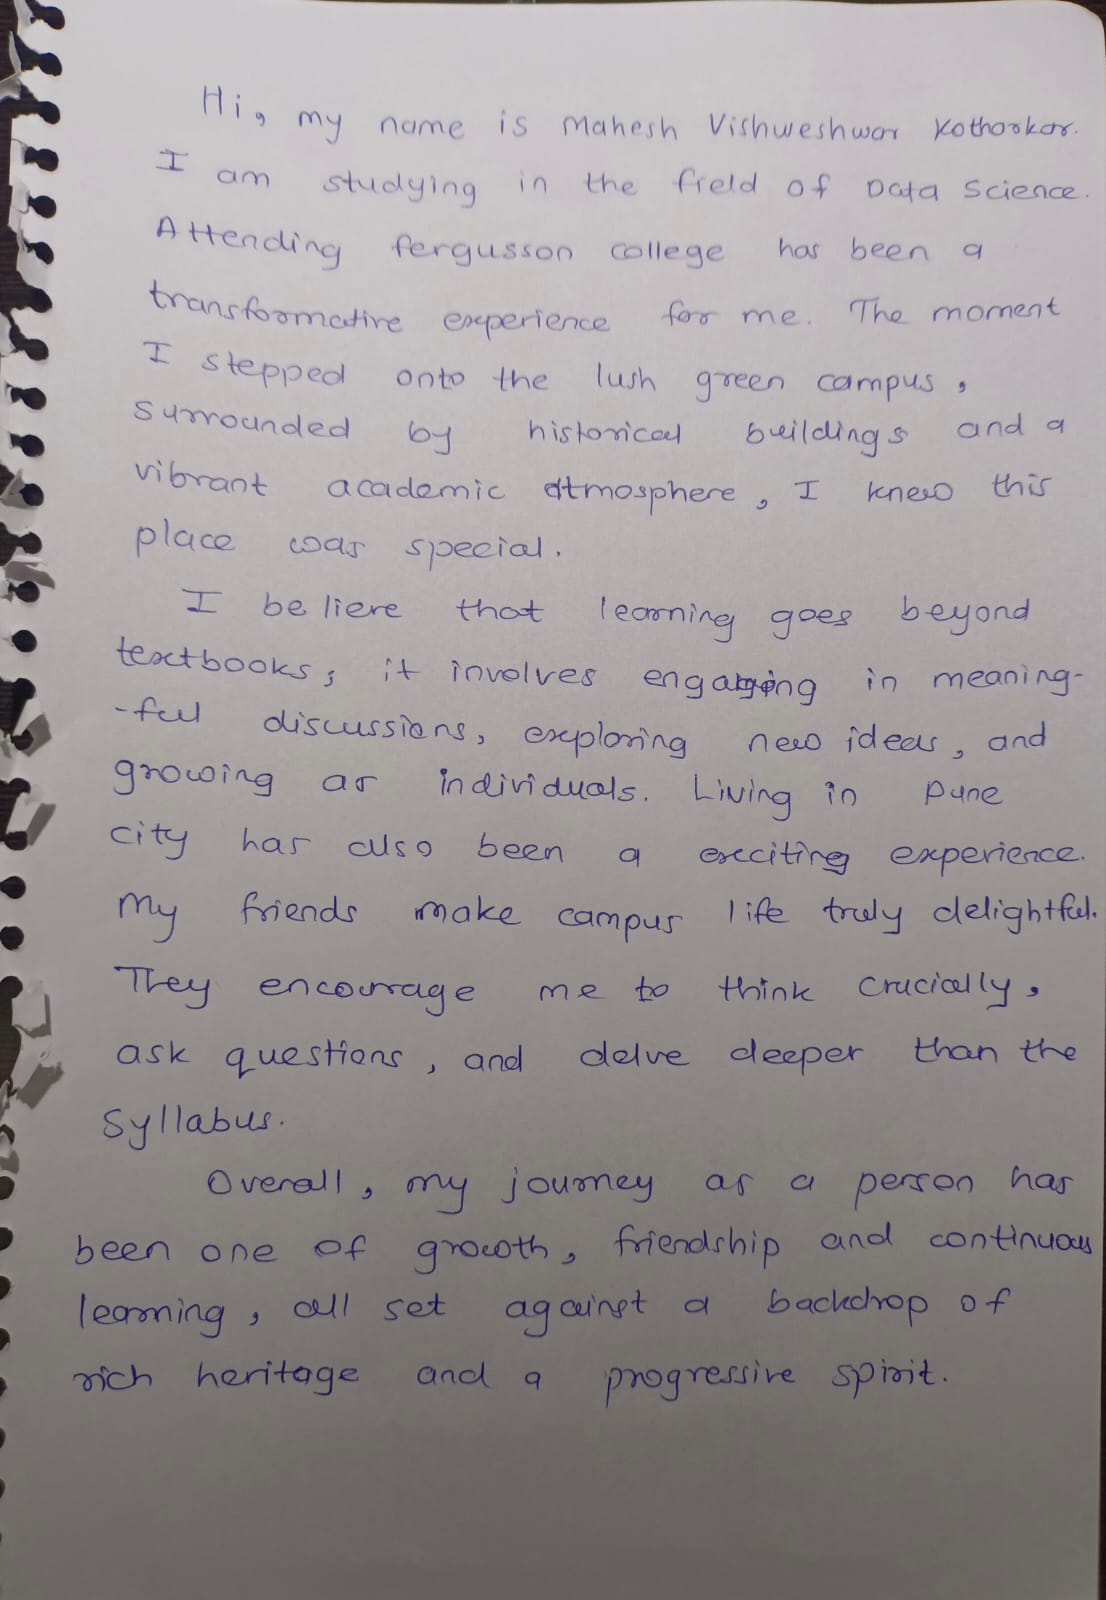 Hi, my name is Mahesh Vishweshwar Kotharkar.
I am studying in the field of Data Science.
Attending fergusson college has been a
transformative experience for me. The moment
I stepped onto the lush green campus,
surrounded by historical buildings and a
vibrant academic atmosphere, I knew this
place was special.
I believe that learning goes beyond
textbooks; it involves engaging in meaning-
-ful discussions, exploring new ideas, and
growing as individuals. Living in Pune
city has also been a exciting experience.
My friends make campus life truly delightful.
They encourage me to think crucially,
ask questions, and delve deeper than the
syllabus.
Overall, my journey as a person has
been one of growth, friendship and continuous
learning, all set against a backdrop of
rich heritage and a progressive spirit.